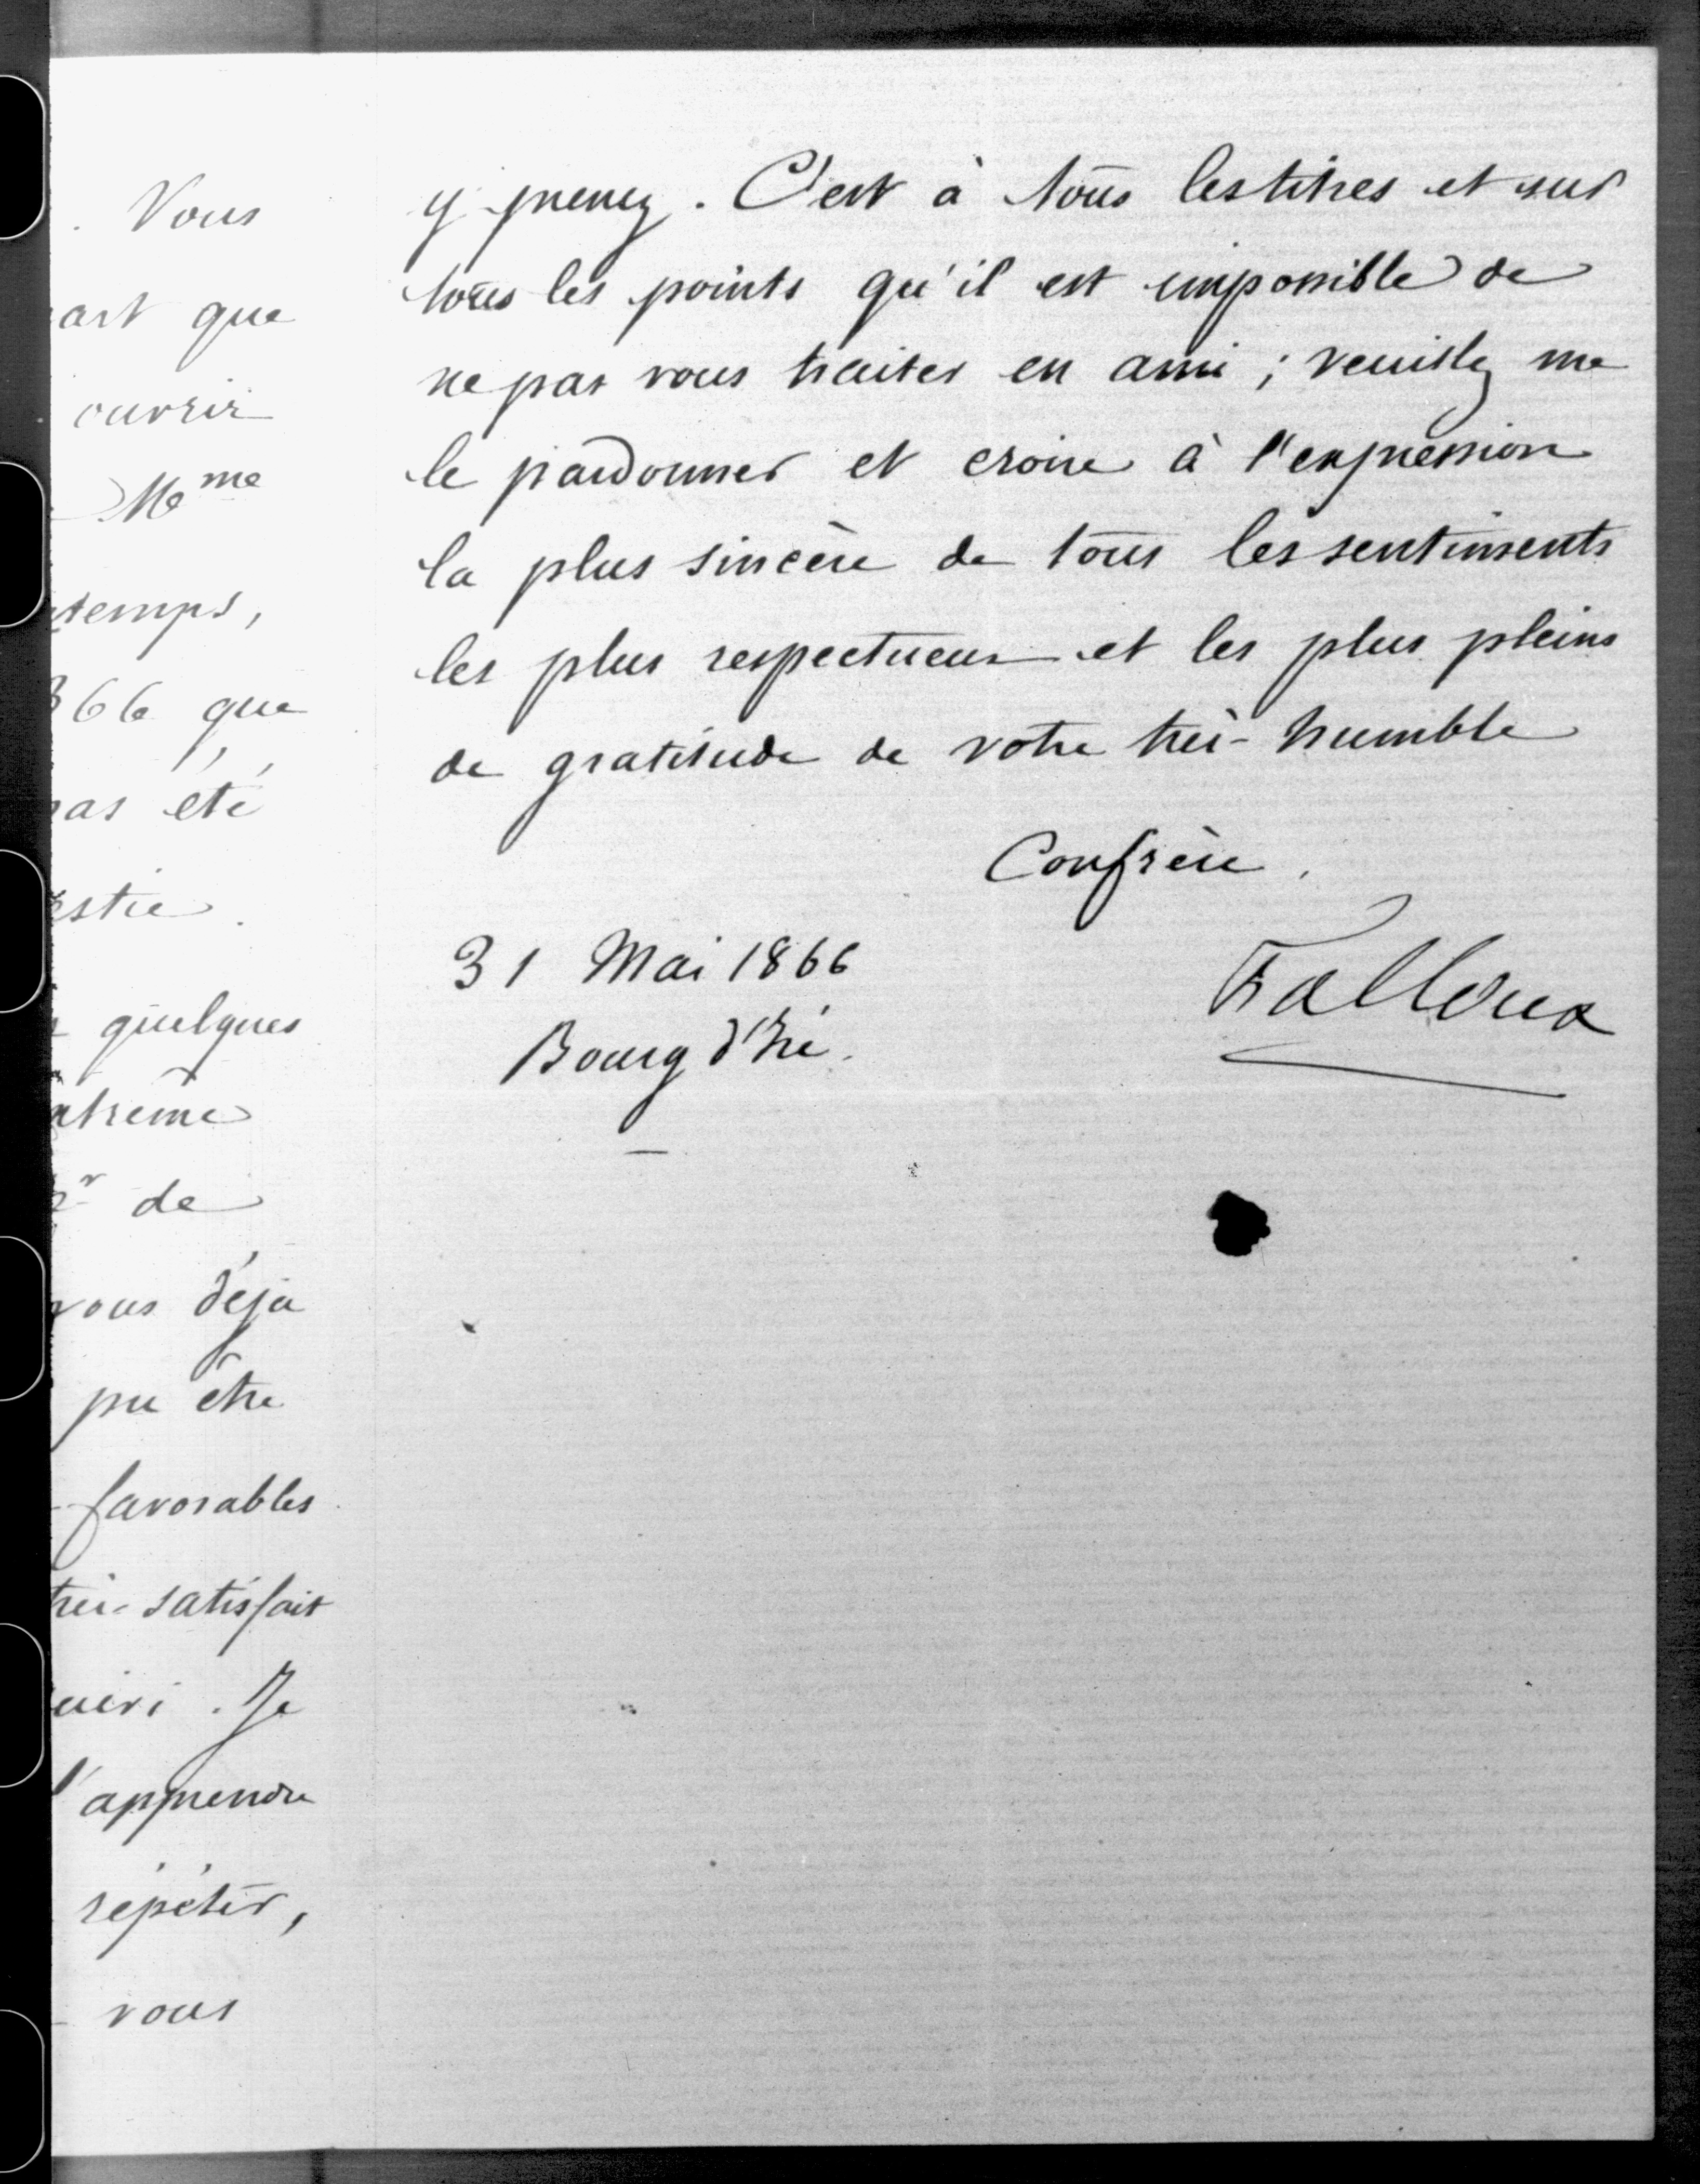 . Vous
art que
ouvrir
Mme
temps,
366 que
pas été
estie.
quelques
xtrême
de
vous déjà
pu être
favorables
très-satisfait
uéri. Je
l'apprendre
répéter,
vous
y prenez. C'est à tous les titres et sur
tous les points qu'il est impossible de
ne pas vous traiter en ami ; veuillez me
le pardonner et croire à l'expression
la plus sincère de tous les sentiments
les plus respectueux et les plus pleins
de gratitude de votre très-humble
Confrère.
Falloux
31 Mai 1866
Bourg d'Iré.